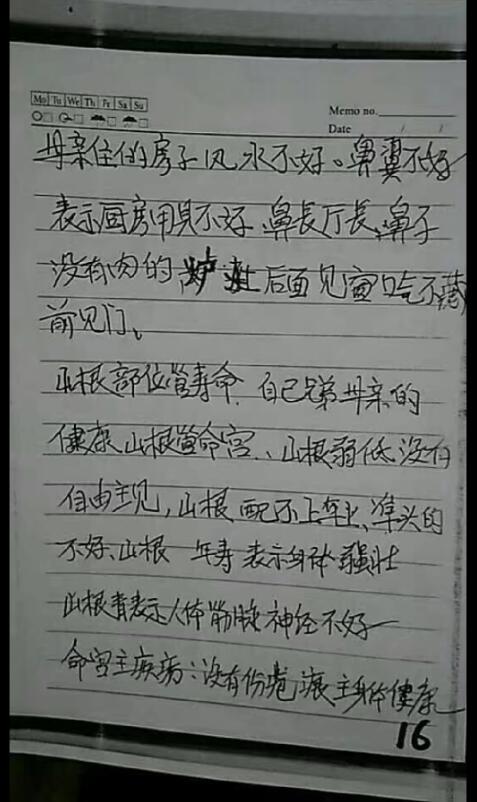 Mo Tu We Th Fr Sa Su
Memo no.
Date / /
母亲住的房子风水不好。鼻翼不好
表示厨房用具不好、鼻長厅長、鼻子
没有肉的 后面见窗 不
前见门、
山根部位管寿命. 自己兄弟母亲的
健康、山根管命宫、山根弱低没有
自由主见，山根配不上年上、準头的
不好、山根 年寿表示身体强壮
山根青表示人体筋脉神经不好
命宫主疾病：没有伤疤痕主身体健康
16